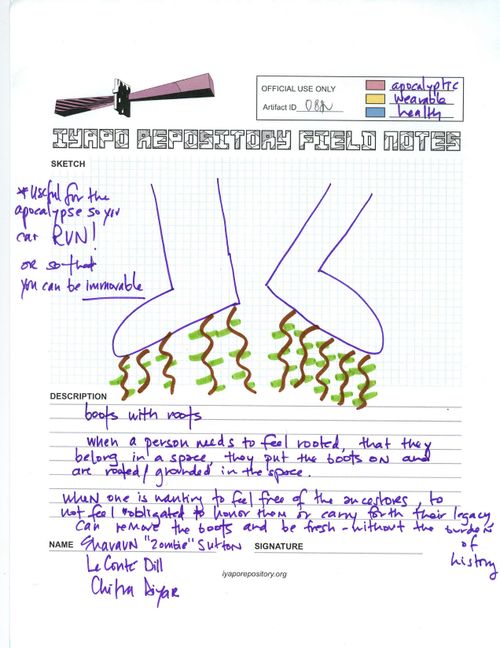 OFFICIAL USE ONLY
Artifact ID
apocalyptic
wearable
health
IYAPO REPOSITORY FIELD NOTES
SKETCH
*Useful for the
apocalypse so you
can RUN!
or so that
you can be immovable
DESCRIPTION
boots with roots
when a person needs to feel rooted, that they
belong in a space, they put the boots on and
are rooted/grounded in the space.
when one is wanting to feel free of the ancestors, to
not feel obligated to honor them or carry forth their legacy
can remove the boots and be fresh-without the burden
of
history
NAME "Zombie" Sutton SIGNATURE
LeConté Dill
iyaporepository.org
Chitra